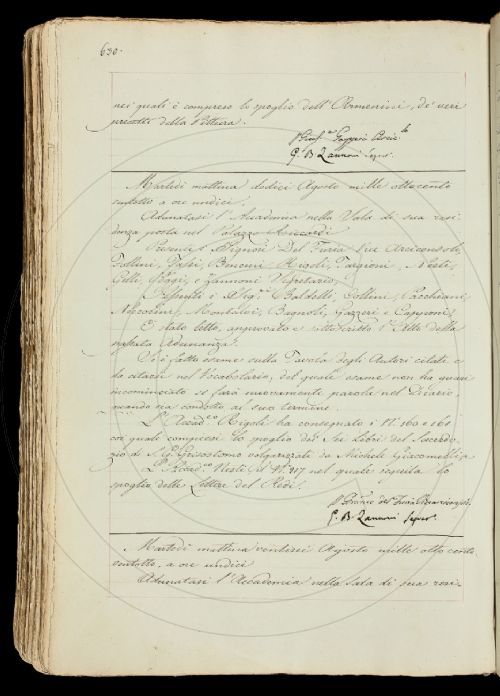 630.
nei quali è compreso lo spoglio dell' Armenini, de' veri
precetti della Pittura.
G. B. Zannoni Segret.
Martedì mattina dodici Agosto mille ottocento
ventotto a ore undici.
Adunatasi l'Accademia nella Sala di sua resi-
denza posta nel Palazzo Riccardi
Presenti i Signori Del Furia Vice Arciconsolo,
Follini, Fossi, Bencini, Rigoli, Targioni, Nesti,
Gelli, Pagi, e Zannoni Segretario,
Assenti i Sig.ri Baldelli, Collini, Pacchiani,
Niccolini, Montalvi, Bagnoli, Gazzeri e Capponi,
È stato letto, approvato e sottoscritto l'Atto della
passata Adunanza.
Si è fatto esame sulla Tavola degli Autori citati e
da citarsi nel Vocabolario, del quale esame non ha guari
incominciato si farà nuovamente parola nel Diario,
quando sia condotto al suo termine.
L'Accad.co Rigoli ha consegnato i N.i 160 e 160
coi quali compiesi lo spoglio dei Sei Libri del Sacerdo-
zio di S. G. Grisostomo volgarizzati da Michele Giacomelli, e
L'Accad.co Nesti il N. 217 nel quale seguita lo
spoglio delle Lettere del Redi.
G. B. Zannoni Segret.
Martedì mattina ventisei Agosto mille otto cento
ventotto, a ore undici
Adunatasi l'Accademia nella Sala di sua resi-